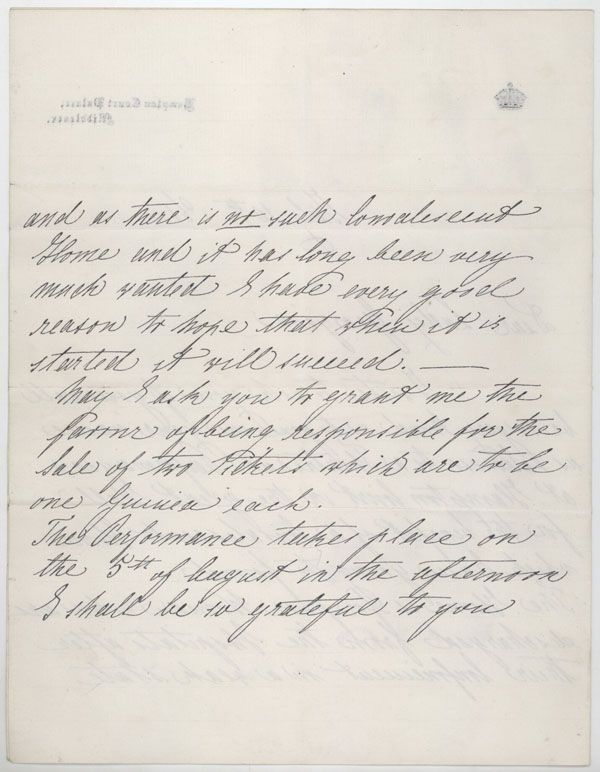 Hampton Court Palace,
Middlesex.
and as there is no such Convalescent
Home and it has long been very
much wanted I have every good
reason to hope that when it is
started it will succeed. —
May I ask you to grant me the
favour of being responsible for the
Sale of two Tickets which are to be
one Guinea each.
The Performance takes place on
the 5th of August in the afternoon
I shall be so grateful to you